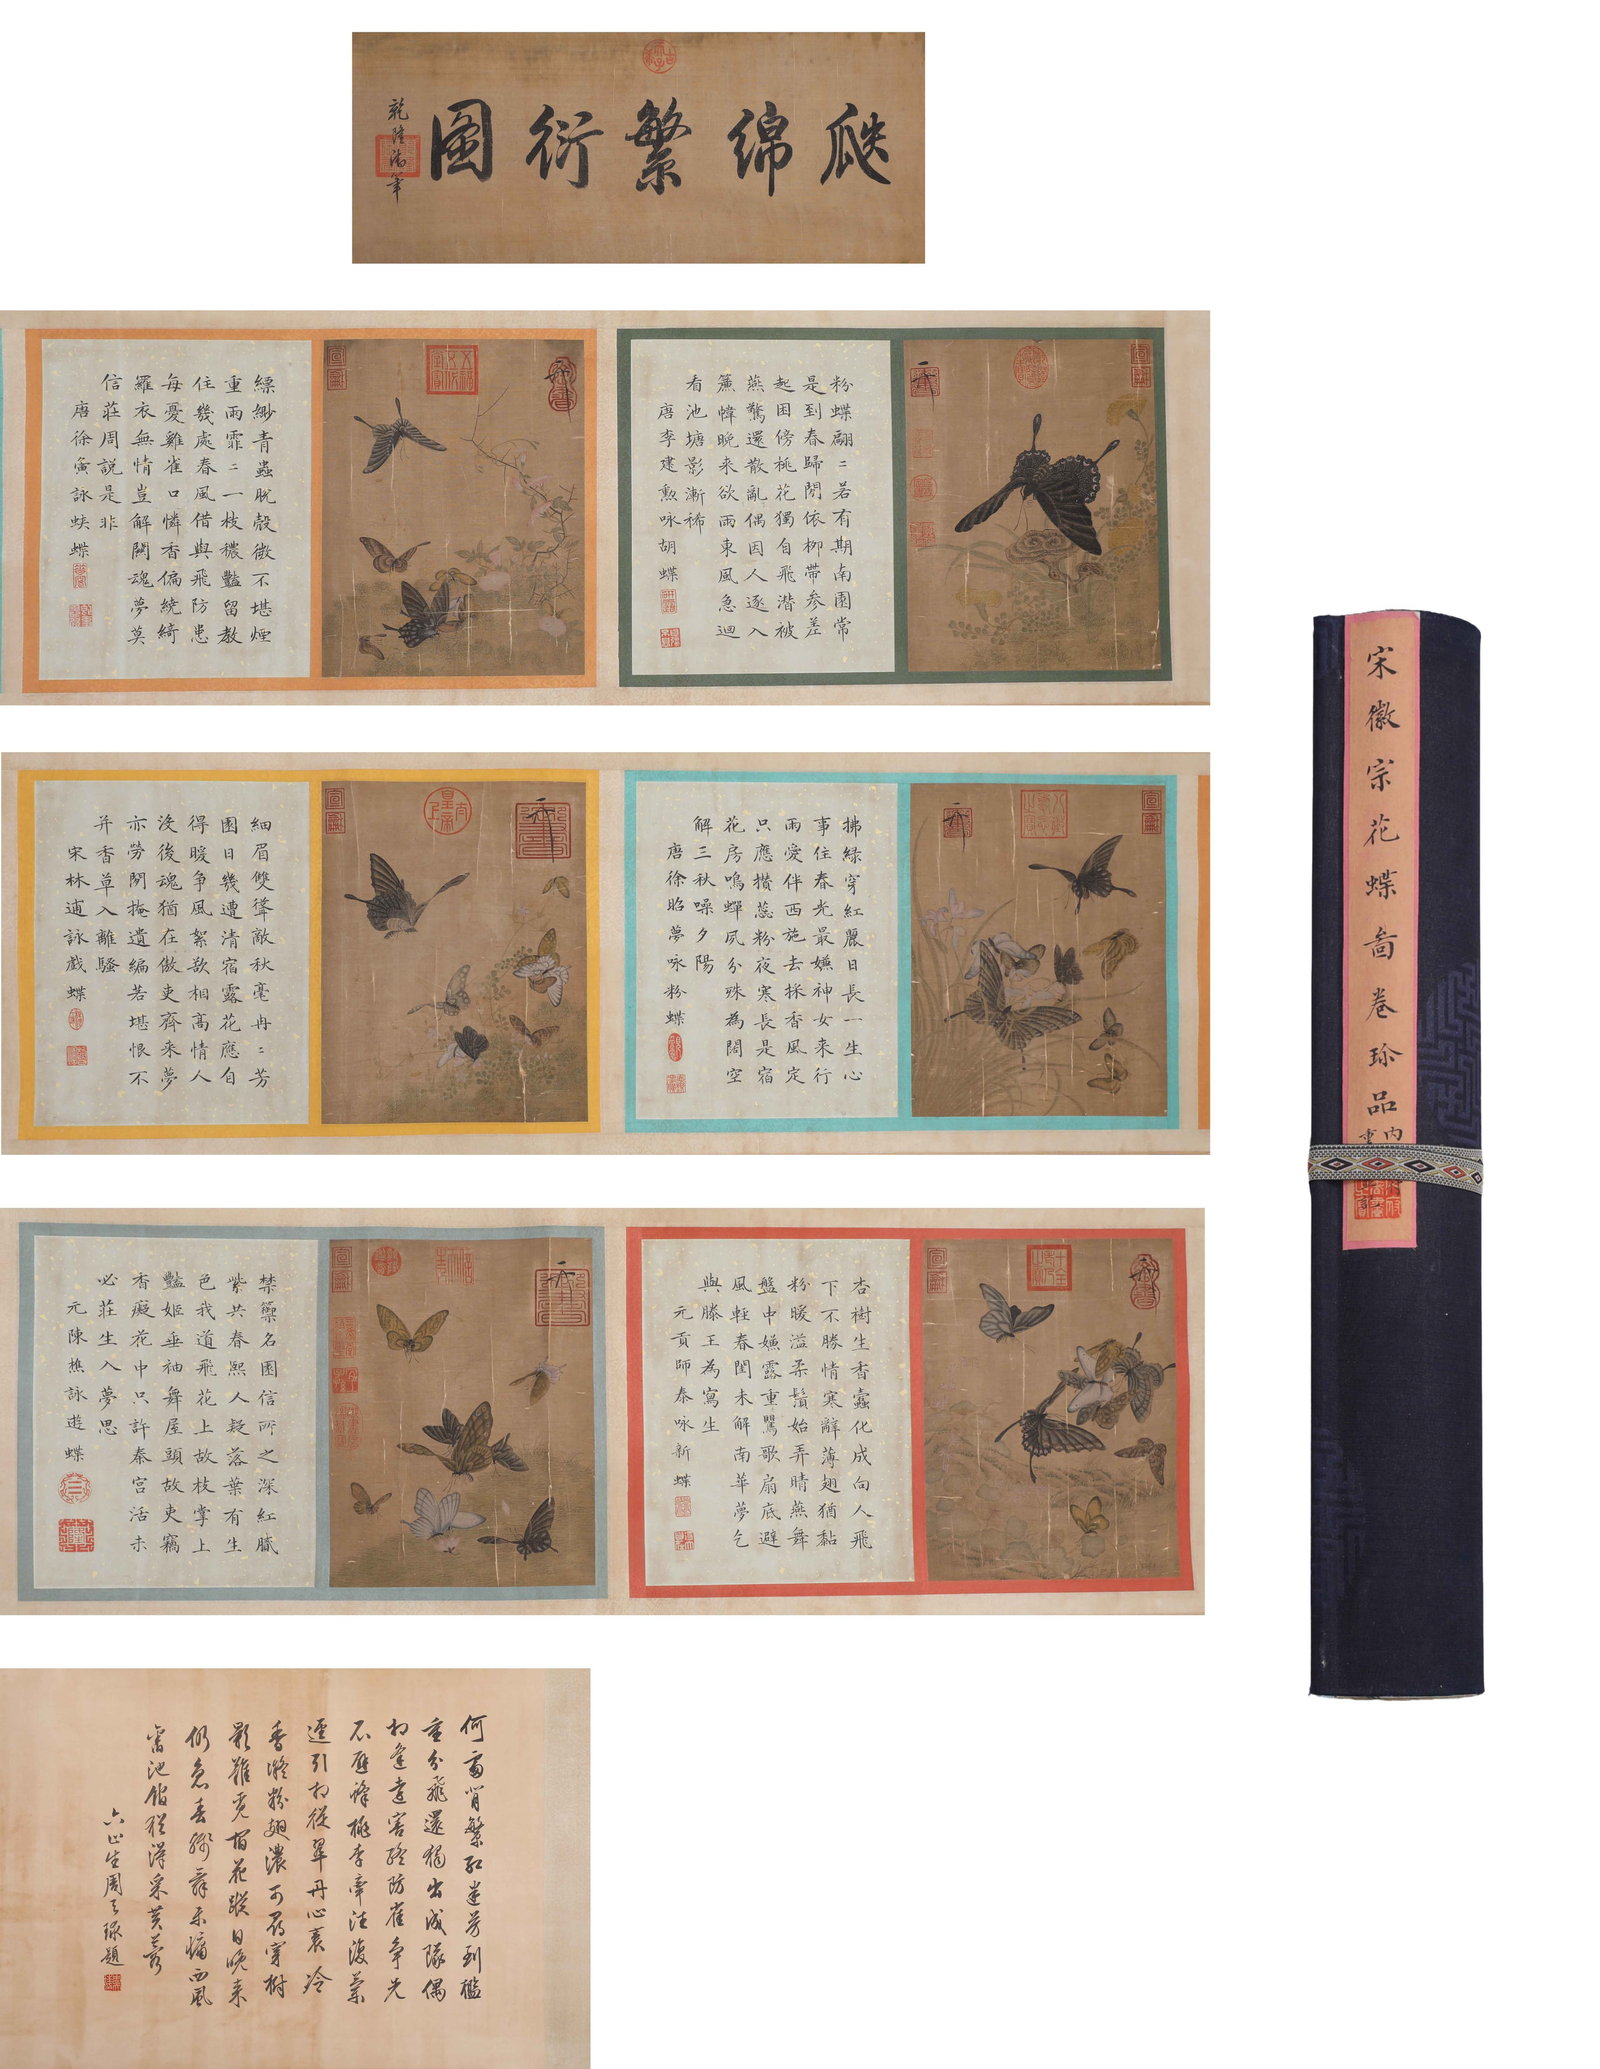 瓞綿繁衍圖
乾隆御筆
粉蝶翩〻若有期南園常
是到春歸閒依柳帶參差
起困傍桃花獨自飛潛被
燕驚還散亂偶因人逐入
簾幃晚來欲雨東風急迴
看池塘影漸稀
唐李建勲咏胡蝶
縹緲青蟲脫殼微不堪煙
重雨霏〻一枝穠豔留教
住幾處春風借與飛防患
每憂雞雀口憐香偏繞綺
羅衣無情豈解關魂夢莫
信莊周説是非
唐徐寅詠蛺蝶
拂綠穿紅麗日長一生心
事住春光最嫌神女來行
雨愛伴西施去採香風定
只應攢蕊粉夜寒長是宿
花房鳴蟬夙分殊為闊空
解三秋噪夕陽
唐徐昭夢咏粉蝶
細眉雙聳敵秋毫冉〻芳
園日幾遭清宿露花應自
得暖争風絮欲相高情人
沒後魂猶在傲吏齊來夢
亦勞閒掩遺編若堪恨不
并香草入離騷
宋林逋詠戲蝶
杏樹生香蠹化成向人飛
下不勝情寒辭薄翅猶黏
粉暖溢柔鬚始弄晴燕舞
盤中嫌露重鶯歌扇底避
風輕春閨未解南華夢乞
與滕王為寫生
元貢師泰咏新蝶
禁籞名園信所之深紅膩
紫共春熙人疑落葉有生
色我道飛花上故枝掌上
豔姬垂袖舞屋頭故吏竊
香癡花中只許秦宮活未
必莊生入夢思
元陳樵詠遊蝶
何處背繁紅迷芳到檻
重分飛還獨出成隊偶
相逢遠害終防雀争先
不避蜂桃李牽往復蘭
逕引相從翠丹心裏冷
香凝粉翅濃可尋穿樹
影難覓宿花蹤日晚來
仍急春殘舞未慵西風
舊池館猶得采芙蓉
六止生周天球題
宋徽宗花蝶啚卷珍品
内